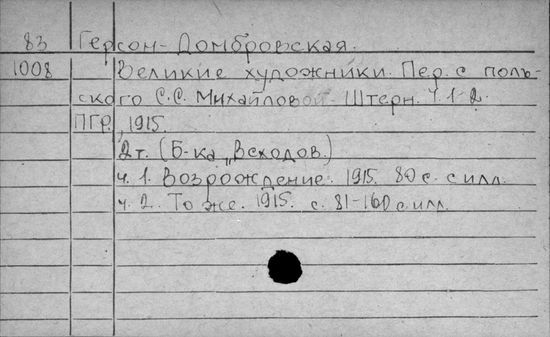 83 Герсон-Домбровская.
1008 Великие художники. Пер. с поль-
ского С.С. Михайловой-Штерн. Ч. 1-2.
ПГР., 1915.
2 т. (Б-ка "Всходов.)
ч. 1. Возрождение. 1915. 80 с. с илл.
ч. 2. То же. 1915. с. 81-160 с илл.